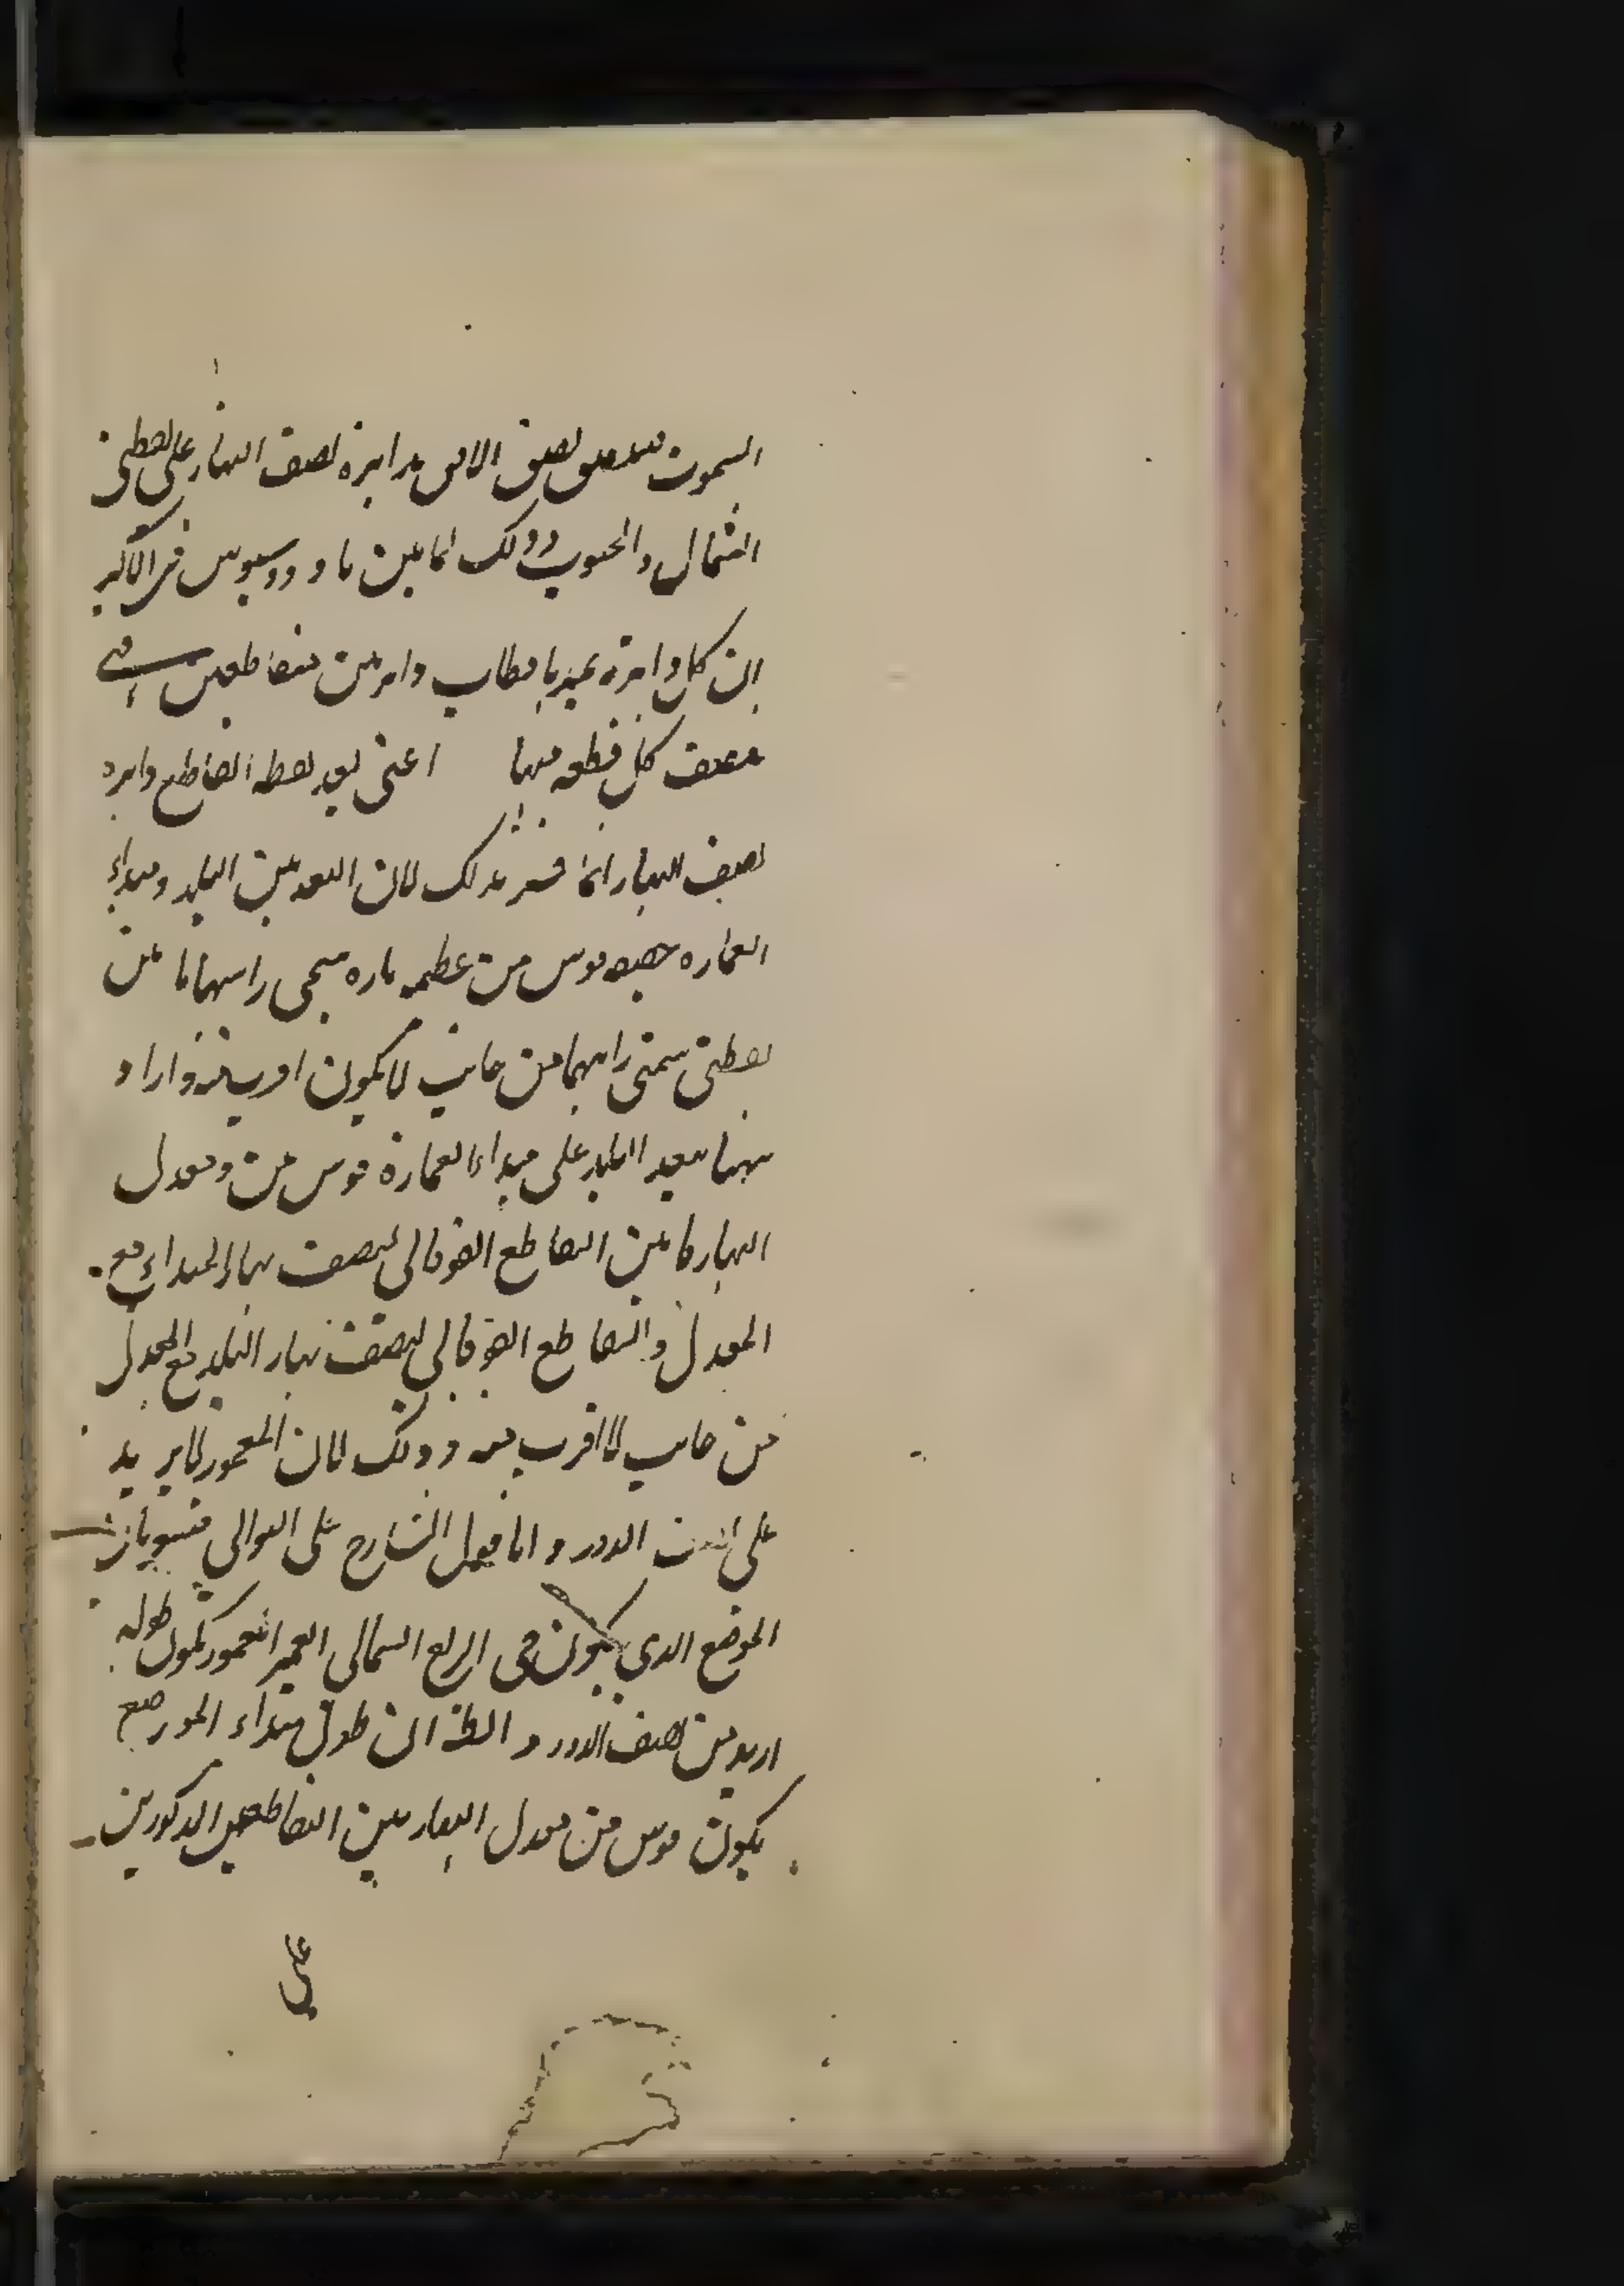 السموت فتنصف نصف الافق بدايرة نصف النهار على نقطتى
الشمال والجنوب وذلك لما بين ثاوذوسيوس فى الاكر
ان كل دايرة تمر باقطاب دايرتين متقاطعين
تنصف كل قطعة منها اعنى بعد نقطة تقاطع دايرة
نصف النهار انما فسر بذلك لان البعد بين البلد ومبداء
العماره حقيقه قوس من عظيمه ماره بسمتى راسهما ما بين
نقطتى سمتى راسهما من جانب لا يكون اقرب منه واراد
ههنا ببعد البلد على مبداء العمارة قوس من معدل
النهار ما بين التقاطع الفوقانى لنصف نهار المبداء مع
المعدل والتقاطع الفوقانى لنصف نهار البلد مع المعدل
من جانب لا اقرب منه وذلك لان المعمور لا يزيد
على نصف الدور واما قول الشارح على التوالى
الموضع الذى يكون فى الربع الشمالى الغير المعمور يكون طوله
ازيد من نصف الدور و الظ ان طول مبداء الموضع
يكون قوس من معدل النهار بين التقاطعين المذكورين
على